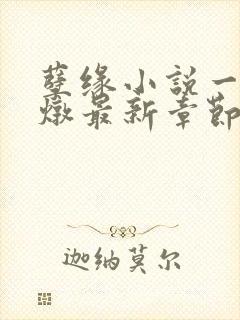 孽缘小说一
燉最新章節
迦纳莫尔